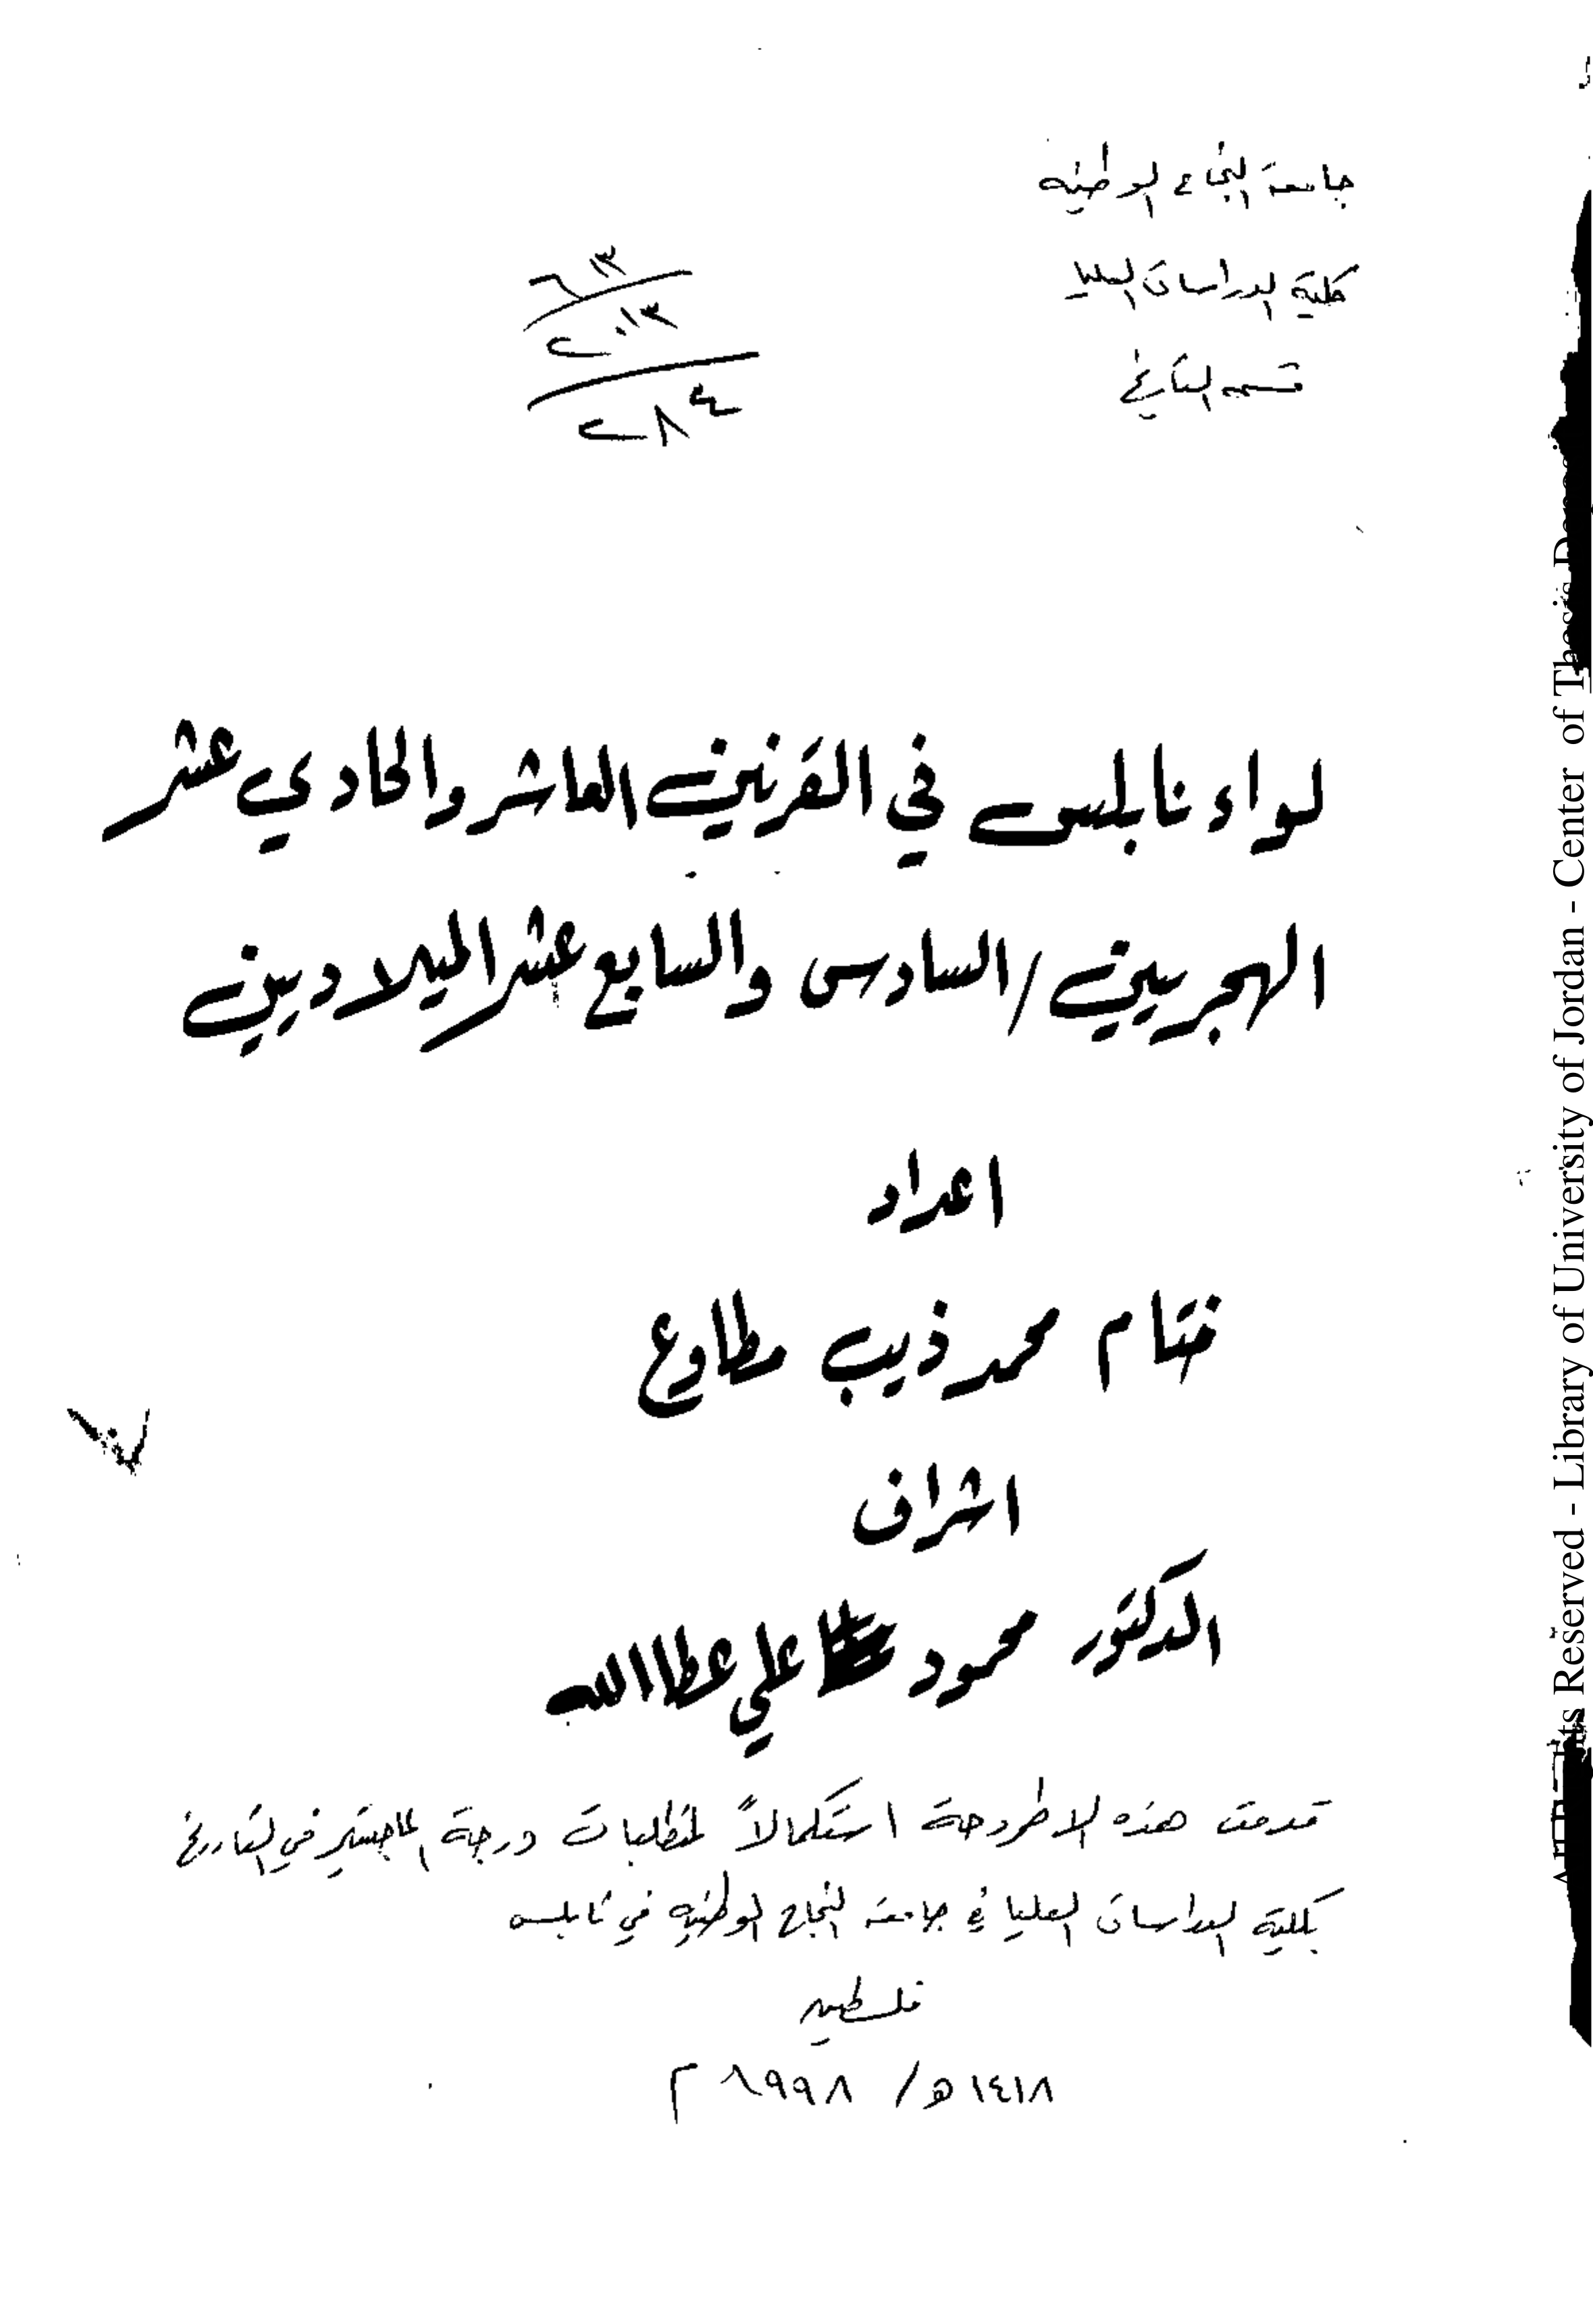 جامعة النجاح الوطنيه
كلية الدراسات العليا
قسم التاريخ
لواء نابلس في القرنين العاشر والحادي عشر
الهجريين/السادس والسابع عشر الميلاديين
اعداد
ختام محمد ذيب مطاوع
اشراف
الدكتور محمود علي عطاالله
قدمت هذه الاطروحة استكمالاً لمتطلبات درجة الماجستير في التاريخ
بكلية الدراسات العليا في جامعة النجاح الوطنيه في نابلس
فلسطين
١٤١٨ه/ ١٩٩٨م
Reserved - Library of University of Jordan - Center of Thesis